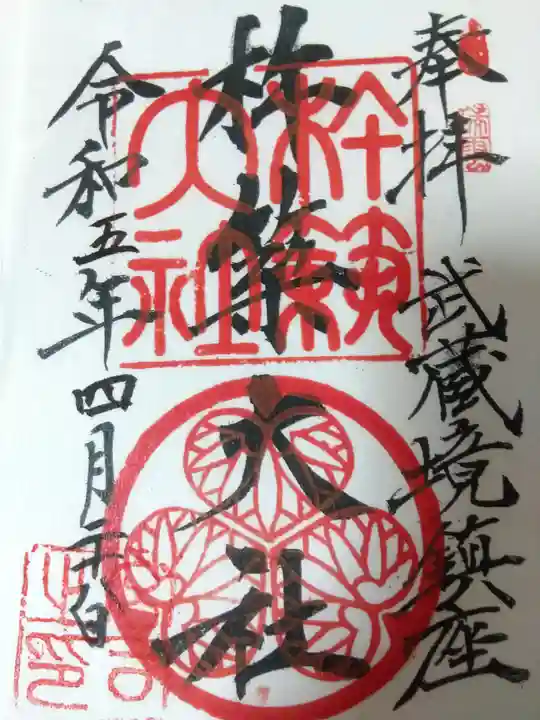 奉拝 武蔵境鎮座
杵築大社
杵築大社
令和五年四月二十八日